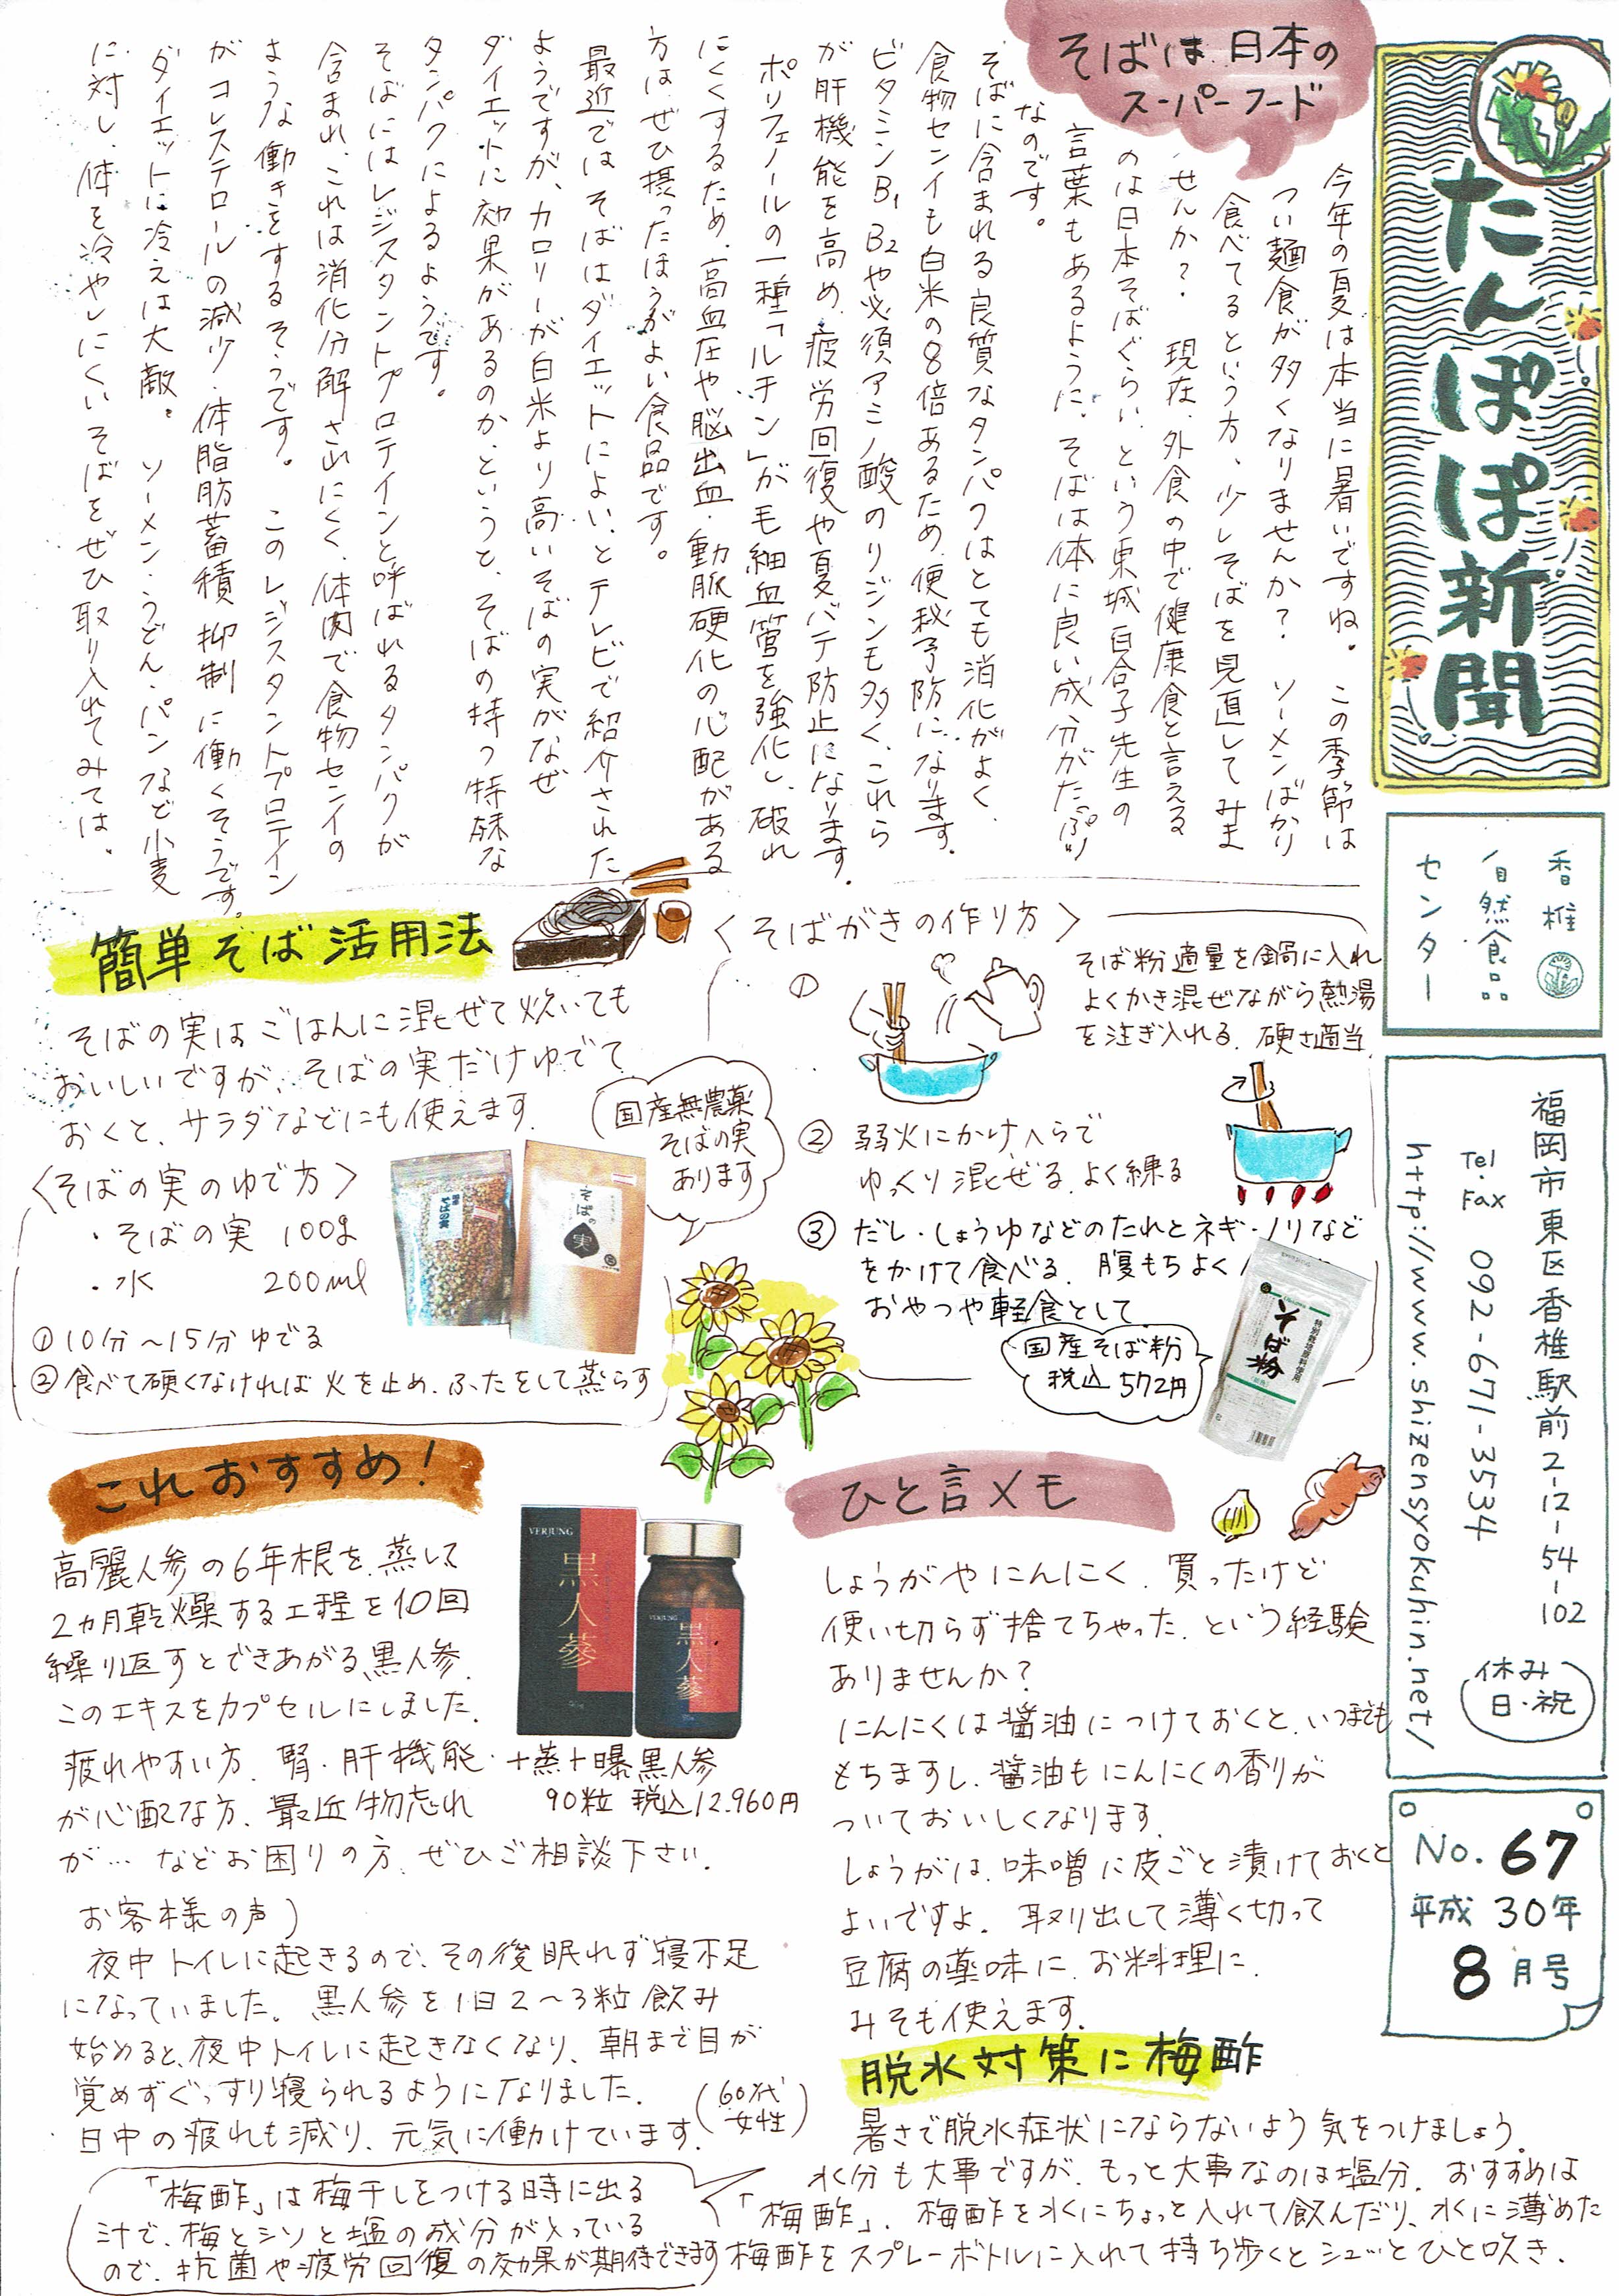 たんぽぽ新聞
香椎
自然食品
センター
福岡市東区香椎駅前2-12-54-102
Tel
Fax 092-671-3534
http://www.shizensyokuhin.net/
休み
日・祝
No.67
平成30年
8月号
そばは日本の
スーパーフード
今年の夏は本当に暑いですね。この季節は
つい麺食が多くなりませんか？ソーメンばかり
食べてるという方、少しそばを見直してみま
せんか？現在、外食の中で健康食と言える
のは日本そばぐらい、という東城百合子先生の
言葉もあるように、そばは体に良い成分がたっぷり
なのです。
そばに含まれる良質なタンパクはとても消化がよく、
食物センイも白米の8倍あるため、便秘予防になります。
ビタミンB1 B2や必須アミノ酸のリジンも多く、これら
が肝機能を高め、疲労回復や夏バテ防止になります。
ポリフェノールの一種「ルチン」が毛細血管を強化し、破れ
にくくするため、高血圧や脳出血・動脈硬化の心配がある
方はぜひ摂ったほうがよい食品です。
最近ではそばはダイエットによい、とテレビで紹介された
ようですが、カロリーが白米より高いそばの実がなぜ
ダイエットに効果があるのか、というと、そばの持つ特殊な
タンパクによるようです。
そばにはレジスタントプロテインと呼ばれるタンパクが
含まれ、これは消化分解されにくく、体内で食物センイの
ような働きをするそうです。このレジスタントプロテイン
がコレステロールの減少・体脂肪蓄積抑制に働くそうです。
ダイエットに冷えは大敵。ソーメン・うどん・パンなど小麦
に対し、体を冷やしにくいそばをぜひ取り入れてみては。
簡単そば活用法
そばの実はごはんに混ぜて炊いても
おいしいですが、そばの実だけゆでて
おくと、サラダなどにも使えます。
国産無農薬
そばの実
あります
〈そばの実のゆで方〉
・そばの実 100g
・水 200ml
① 10分〜15分ゆでる
② 食べて硬くなければ火を止め、ふたをして蒸らす
そばの実
そばの実
〈そばがきの作り方〉
①
そば粉適量を鍋に入れ
よくかき混ぜながら熱湯
を注ぎ入れる。硬さ適当
② 弱火にかけヘらで
ゆっくり混ぜる。よく練る
③ だし・しょうゆなどのたれとネギ・ノリなど
をかけて食べる。腹もちよく
おやつや軽食として
国産そば粉
税込572円
特別栽培原料使用
そば粉
これおすすめ！
高麗人参の6年根を、蒸して
2カ月乾燥する工程を10回
繰り返すとできあがる黒人参。
このエキスをカプセルにしました。
疲れやすい方、腎・肝機能
が心配な方、最近物忘れ
が…などお困りの方、ぜひご相談下さい。
VERJUNG
黒人蔘
VERJUNG
黒人蔘
十蒸十曝黒人参
90粒 税込12,960円
お客様の声)
夜中トイレに起きるので、その後眠れず寝不足
になっていました。黒人参を1日2〜3粒飲み
始めると、夜中トイレに起きなくなり、朝まで目が
覚めずぐっすり寝られるようになりました。
日中の疲れも減り、元気に働けています。
(60代
女性)
ひと言メモ
しょうがやにんにく、買ったけど
使い切らず捨てちゃった、という経験
ありませんか？
にんにくは醤油につけておくと、いつまでも
もちますし、醤油もにんにくの香りが
ついておいしくなります。
しょうがは、味噌に皮ごと漬けておくと
よいですよ。取り出して薄く切って
豆腐の薬味に、お料理に。
みそも使えます。
脱水対策に梅酢
暑さで脱水症状にならないよう気をつけましょう。
水分も大事ですが、もっと大事なのは塩分。おすすめは
「梅酢」。梅酢を水にちょっと入れて飲んだり、水に薄めた
梅酢をスプレーボトルに入れて持ち歩くとシュッとひと吹き。
「梅酢」は梅干しをつける時に出る
汁で、梅とシソと塩の成分が入っている
ので、抗菌や疲労回復の効果が期待できます